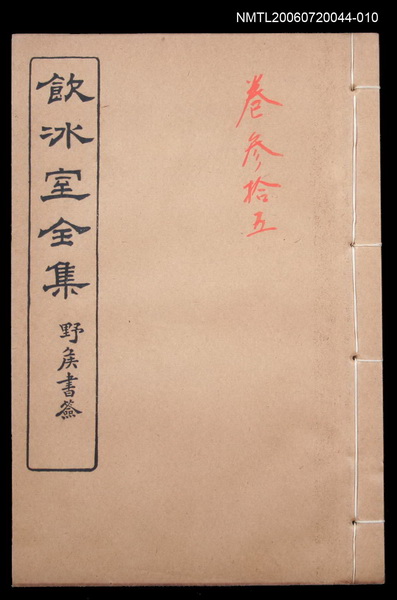 NMTL20060720044-010
卷參拾五
飲冰室全集
野矦書簽